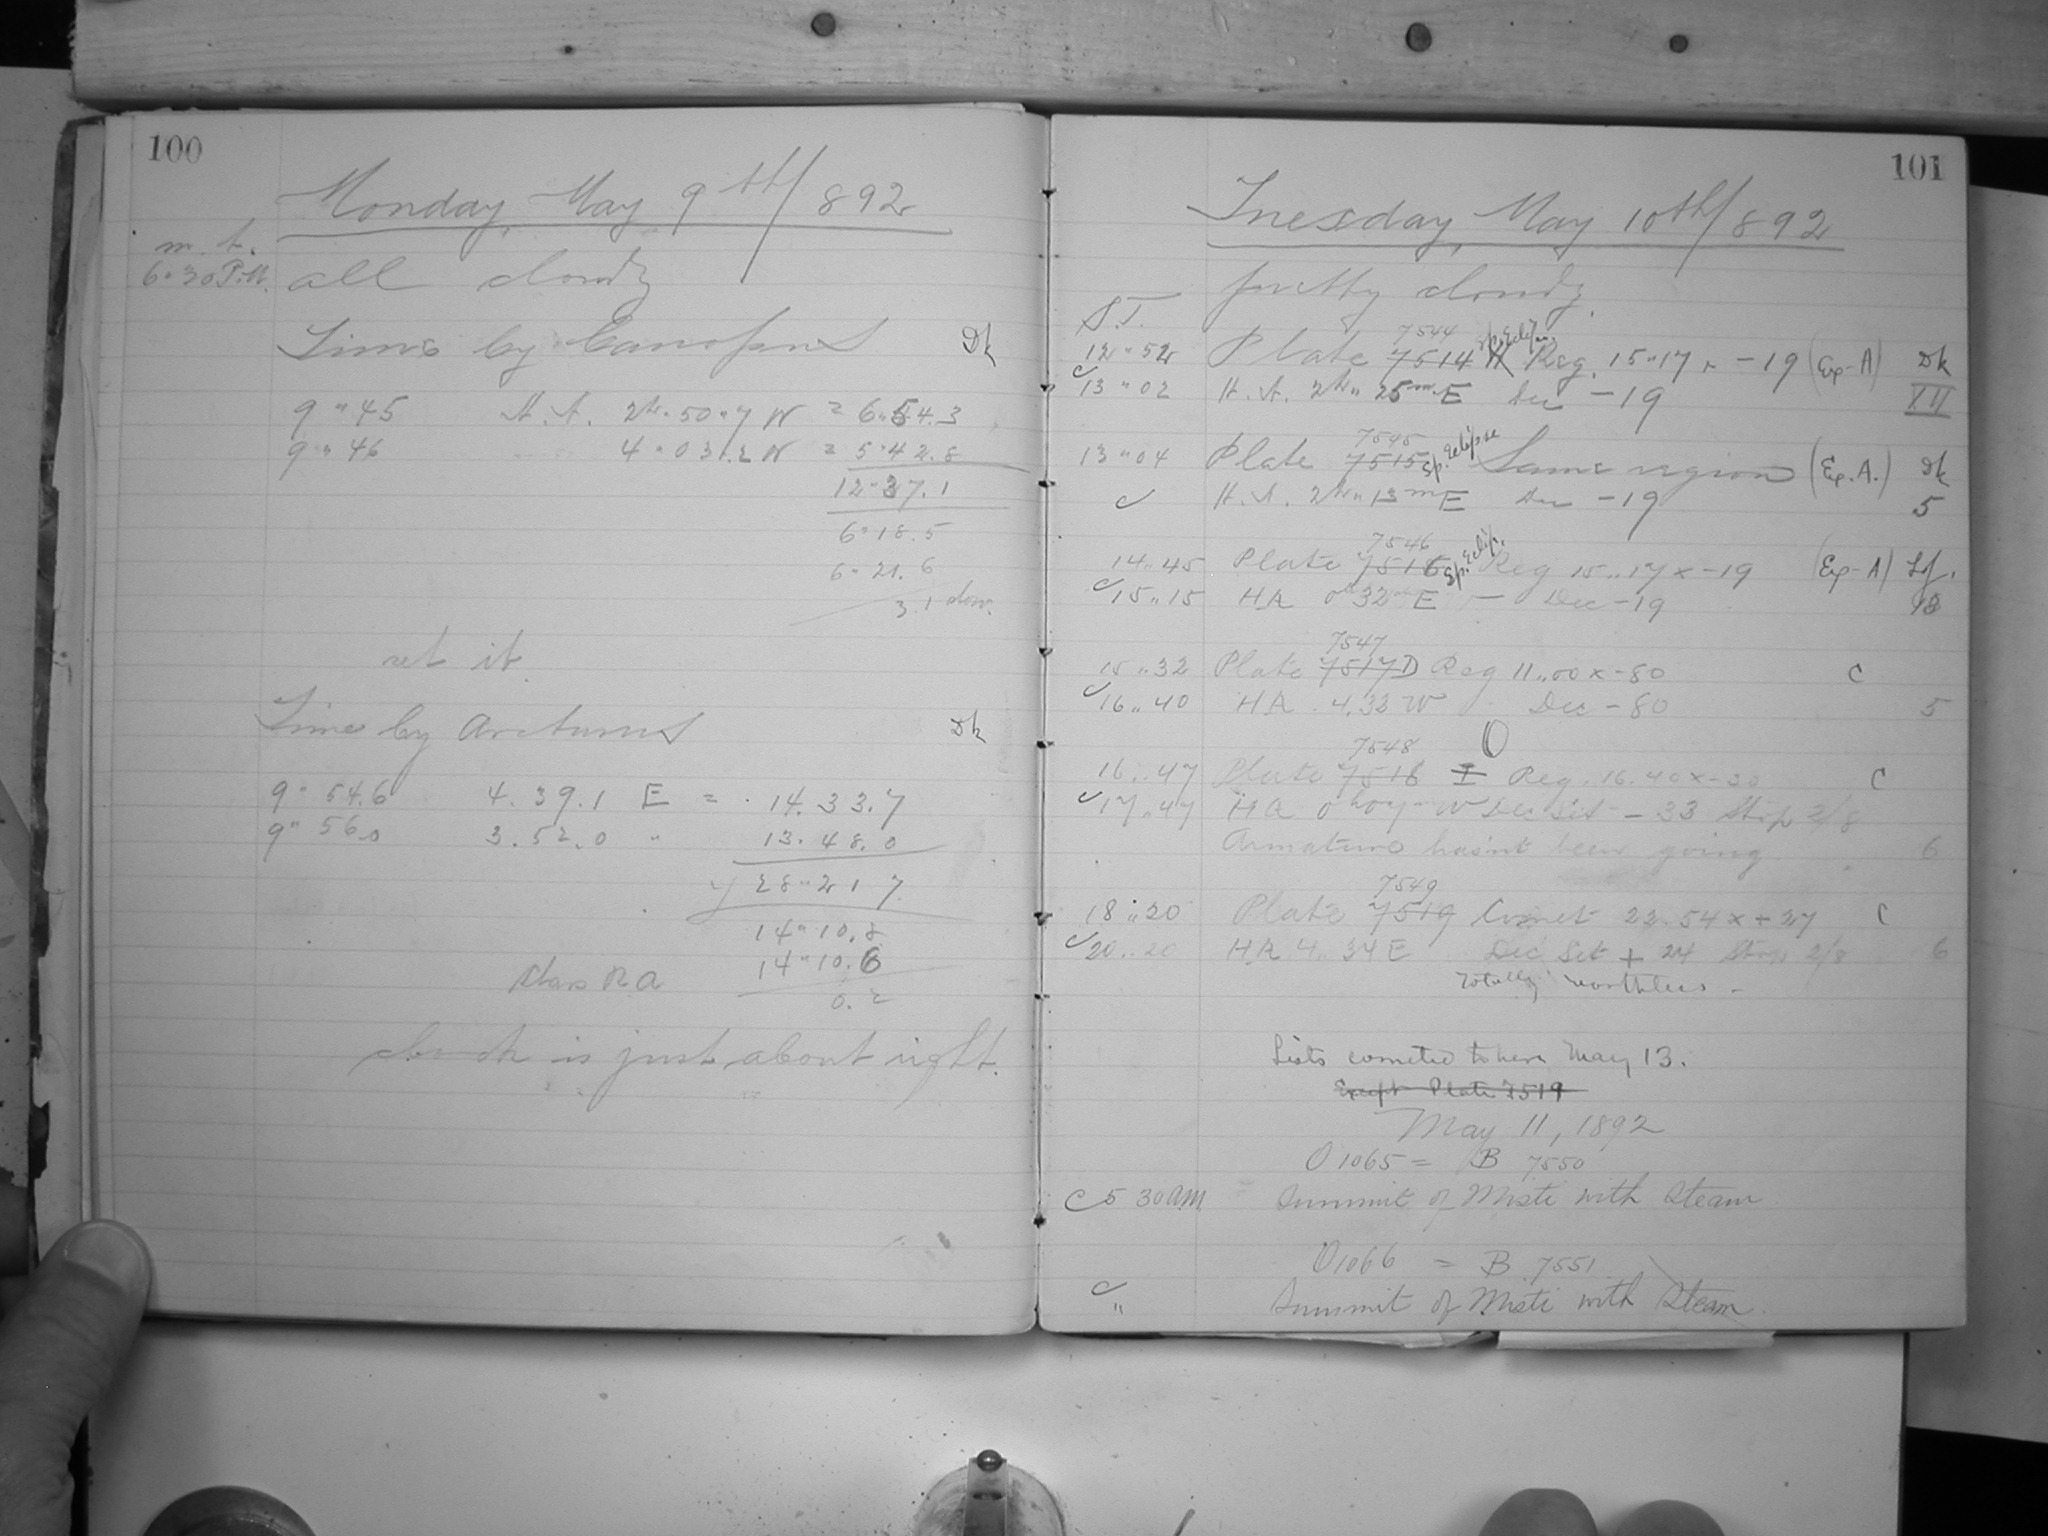 100
Monday, May 9th/892
m. t.
6"30 P.M. all cloudy
Time by Canopus Dk
9"45 H.A. 2h"50"7 W = 6"54.3
9"46 4"03.2 W = 5"42.8
12"37.1
6"18.5
6"21.6
3.1 slow.
set it
Time by Arcturus Dk
9"54.6 4.39.1 E = 14.33.7
9"56.0 3.52.0 " 13.48.0
28"21 7
14"10.8
Stars RA 14"10.6
0.2
clock is just about right.
101
Tuesday, May 10th/892
pretty cloudy
S.T.
7544 Sp. Eclipse
12"52 Plate 7514 Reg. 15"17 x -19 (Exp-A) Dk
13"02 H.A. 2h"25m E Dec -19 XII
7545 Sp. Eclipse
13"04 Plate 7515 Same region (Ex.A.) Dk
H.A. 2h"13m E Dec -19 5
7546 Sp. Eclip.
14"45 Plate 7516 Reg 15"17 x -19 (Exp-A) Lf.
15"15 HA 0h32 E Dec -19 13
7547
15"32 Plate 7517 D Reg 11"00 x -80 C
16"40 HA 4.32 W Dec -80 5
7548 O
16"47 Plate 7518 I Reg. 16.40 x -33 C
17"47 HA 0h07m W Dec Set -33 Stop 2/8
Armature hasn't been going 6
7549
18"20 Plate 7519 Comet 22.54 x + 27 C
20"20 HA 4"34 E Dec Set + 24 Stop 2/8 6
Totally worthless -
Lists to here May 13.
Except Plate 7519
May 11, 1892
O 1065 = B 7550
5 30 AM Summit of Misti with Steam
O 1066 = B 7551
" Summit of Misti with Steam.